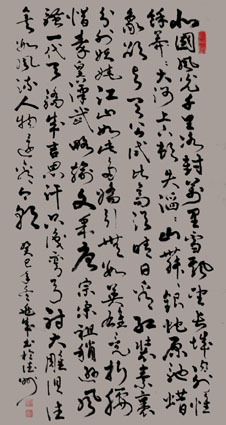 北國風光千里冰封萬里雪飄望長城內外惟
餘莽莽大河上下頓失滔滔山舞銀蛇原馳蠟
象欲與天公試比高須晴日看紅裝素裹
分外妖嬈江山如此多嬌引無數英雄競折腰
惜秦皇漢武略輸文采唐宗宋祖稍遜風
騷一代天驕成吉思汗只識彎弓射大雕俱往
矣數風流人物還看今朝
癸巳年